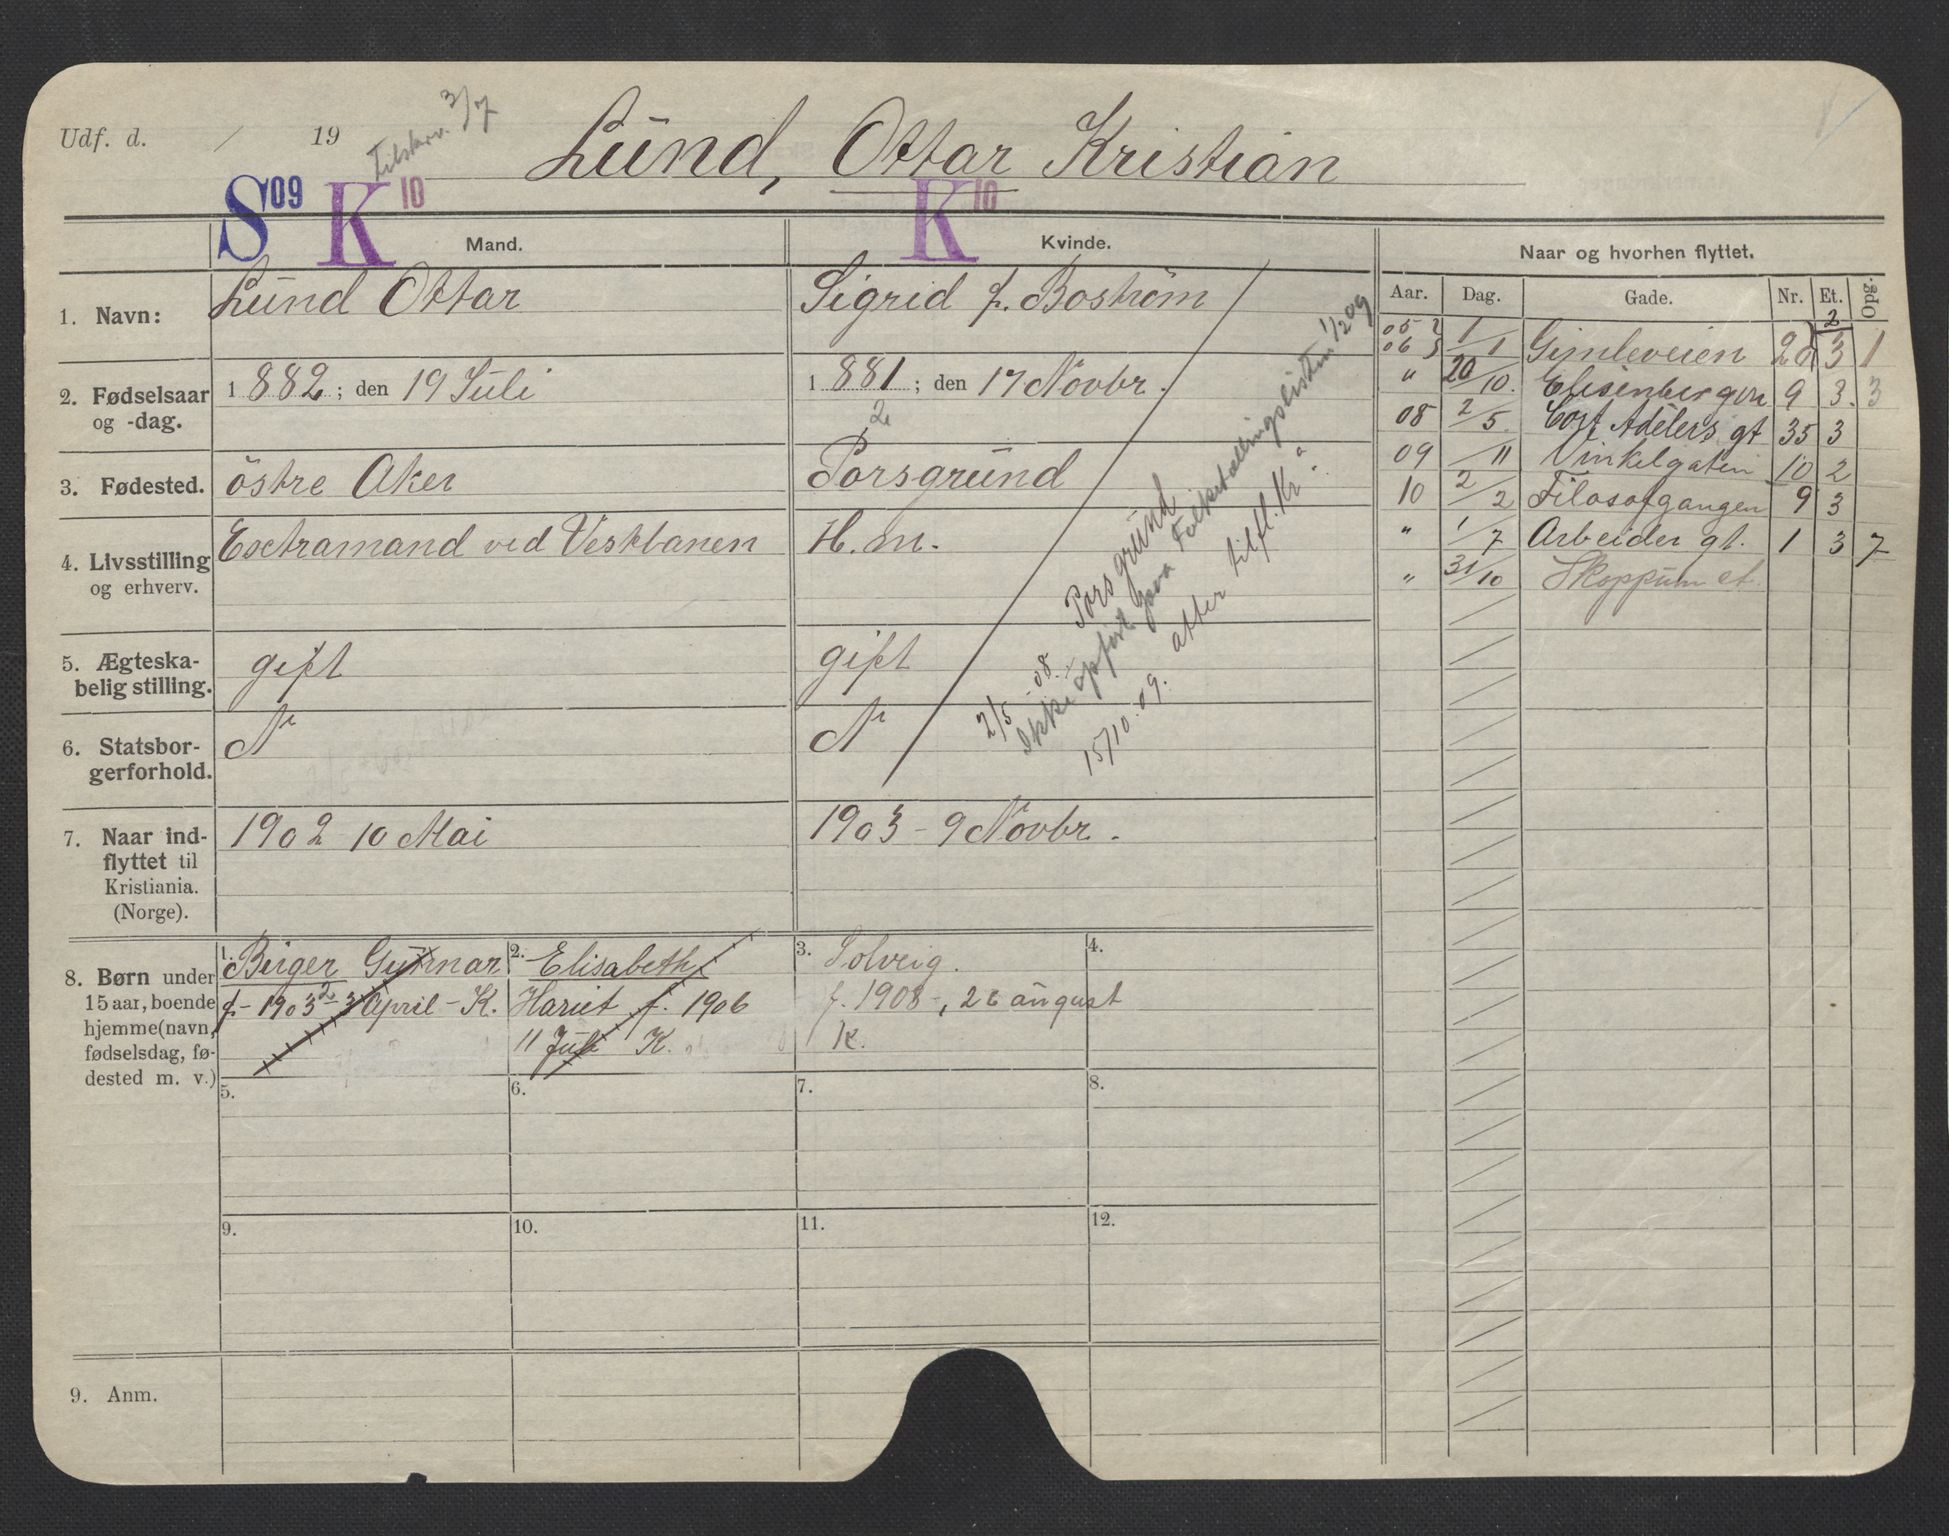 Udf. d. / 19
Tilskrv. 3/7
Lund, Ottar Kristian
S 09 K 10
K 10
Mand.
Kvinde.
Naar og hvorhen flyttet.
Aar. Dag. Gade. Nr. Et. Opg.
1. Navn:
Lund Ottar
Sigrid f. Boström
2. Fødselsaar
og -dag.
1 882 ; den 19 Juli
1 881 ; den 17 Novbr.
2
3. Fødested.
östre Aker
Porsgrund
4. Livsstilling
og erhverv.
Extramand ved Vestbanen
H. m.
5. Ægteska-
belig stilling.
gift
gift
6. Statsbor-
gerforhold.
N
N
2/5 - 08. Porsgrund
Ikke opført paa Folketællingslisten 1/2 09
15/10. 09. atter tilfl. Kr.a
7. Naar ind-
flyttet til
Kristiania.
(Norge).
1902 10 Mai
1903 - 9 Novbr.
8. Børn under
15 aar, boende
hjemme (navn,
fødselsdag, fø-
dested m. v.)
1. Birger Gunnar
f. - 1903 - 3 April - K.
2
2. Elisabeth
Hariet f. 1906
11 Juli K.
3. Solveig.
f. 1908 -, 26 august
K.
4.
5. 6. 7. 8.
9. 10. 11. 12.
9. Anm.
05
06 1/1 Gimleveien 20 3 1
2
" 20/10. Elisenbergvn 9 3. 3
08 2/5. Cort Adelers gt 35 3
09 /11 Vinkelgaten 10 2
10 2/2 Filosofgangen 9 3
" 1/7 Arbeider gt. 1 3 7
" 31/10 Skoppum st.